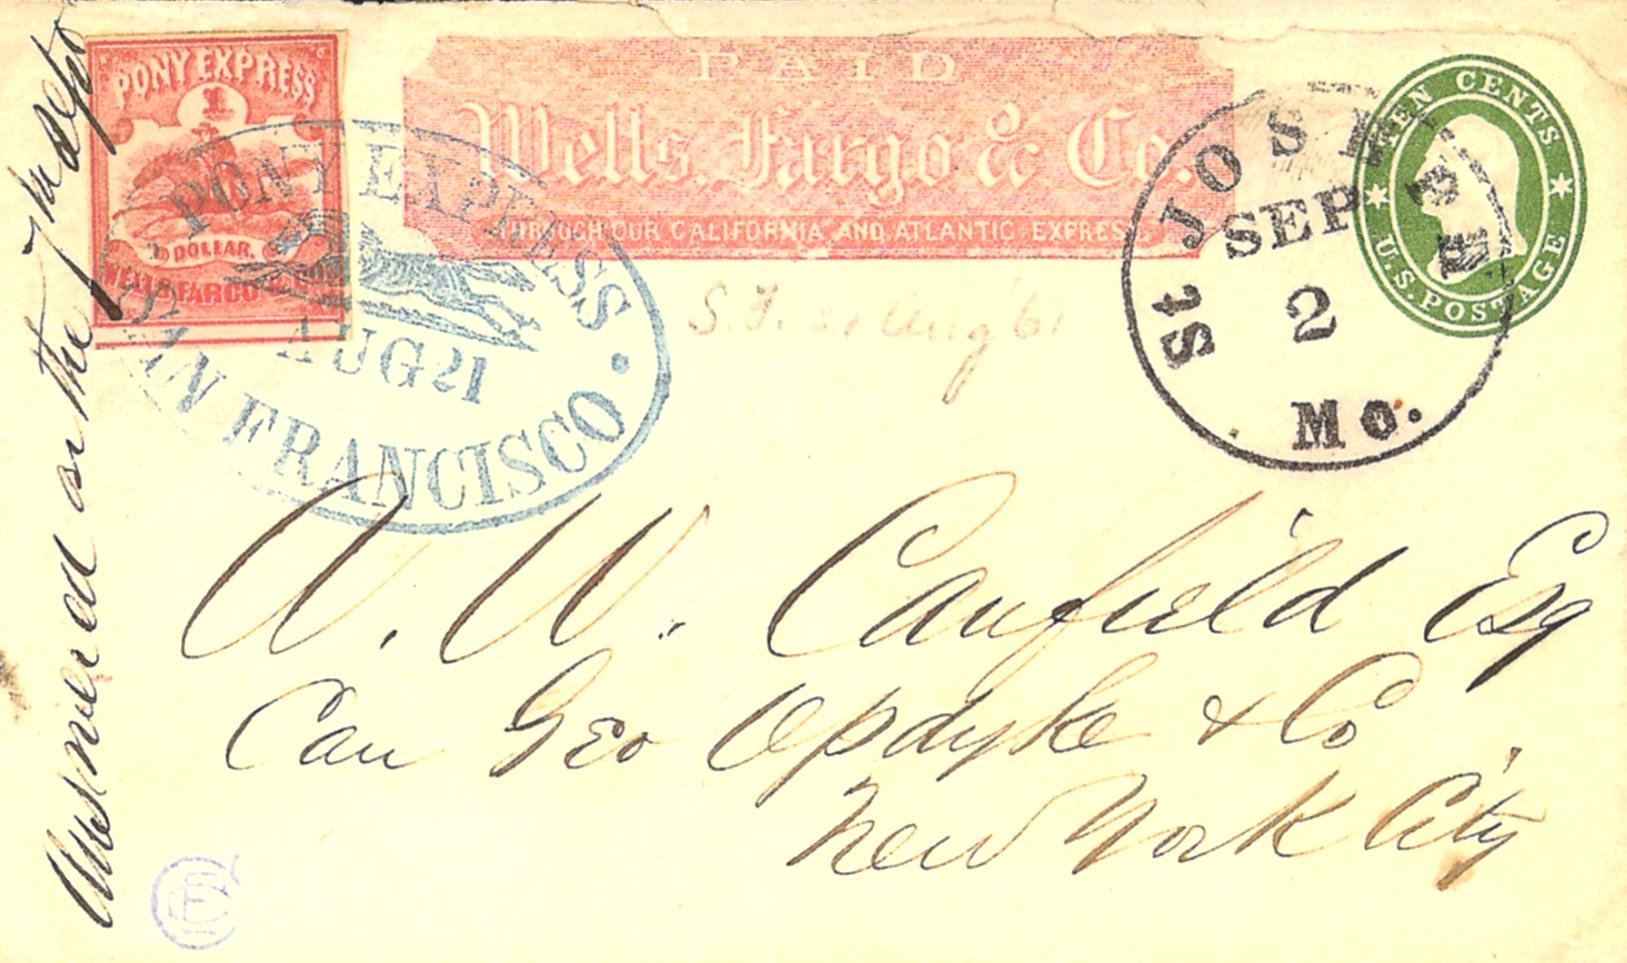 PONY EXPRESS
1
DOLLAR.
WELLS, FARGO
PAID
Wells, Fargo & Co.
THROUGH OUR CALIFORNIA AND ATLANTIC EXPRESS.
PONY EXPRESS
AUG 21
SAN FRANCISCO
St JOSEPH
SEP
2
Mo.
TEN CENTS
U.S. POSTAGE
S.F. 21 Aug '61
Answered on the 7th Sept
A. W. Canfield Esq
Care Geo Opdyke & Co
New York City